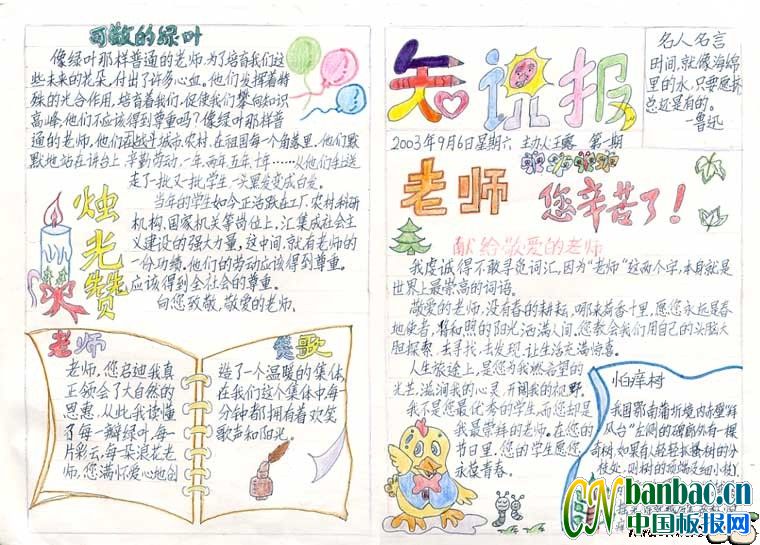 可敬的绿叶
像绿叶那样普通的老师,为了培育我们这
些未来的花朵,付出了许多心血。他们发挥着特
殊的光合作用,培育着我们,促使我们攀向知识
高峰,他们不应该得到尊重吗?像绿叶那样普
通的老师,他们在城市、农村,在祖国每一个角落里,他们默
默地站在讲台上,辛勤劳动,一年、两年、五年、十年……从他们手上送
走了一批又一批学生,一头黑发变成白发。
当年的学生如今正活跃在工厂、农村、科研
机构、国家机关等岗位上,汇集成社会主
义建设的强大力量,这中间,就有老师的
一份功绩。他们的劳动应该得到尊重。
应该得到全社会的尊重。
向您致敬,敬爱的老师。
烛光赞
老师
老师,您启迪我真
正领会了大自然的
恩惠,从此我读懂
了每一瓣绿叶,每一
片彩云,每一朵浪花老
师,您满怀爱心地创
赞歌
造了一个温暖的集体,
在我们这个集体中每一
分钟都拥有着欢笑
歌声和阳光。
知识报
2003年9月6日星期六 主办人王 第一期
名人名言
时间,就像海绵
里的水,只要愿挤,
总还是有的。
—鲁迅
老师 您辛苦了!
献给敬爱的老师
我虔诚得不敢寻觅词汇,因为“老师”这两个字,本身就是
世界上最崇高的词语。
敬爱的老师,没有春的耕耘,哪来荷香十里,愿您永远是春
地使者,将和照的阳光洒满人间。您教会我们用自己的头脑大
胆探索,去寻找,去发现,让生活充满惊喜。
人生旅途上,是您为我燃起希望的
光芒,滋润我的心灵,开阔我的视野。
我不是您最优秀的学生,而您却是
我最崇拜的老师。在您的
节日里,您的学生愿您
永葆青春。
怕痒树
我国鄂南蒲圻境内赤壁“拜
风台”左侧的碑廊外有一棵
奇树,如果有人轻轻抓搔树的分
枝处,则树的顶端及细小枝
CN banbao.cn
中国板报网